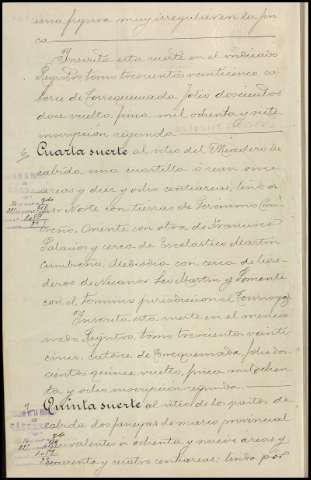 una figura muy irregular en la fin
ca
Inscrita esta suerte en el indicado
Registro, tomo trescientos veinticinco ca
torce de Torrequemada, folio doscientos
doce vuelto, finca mil ochenta y siete
inscripcion segunda
Cuarta suerte al sitio del
cabida una cuartilla o sean once
areas y diez y ocho centiareas; linda
Norte con tierras de Geronimo
Oriente con otra de Francisco
Palacios y cerca de Escolastico Martin
Mediodia con cerca de here
deros de Nicanor Leo Martin y Poniente
con el termino jurisdiccional
Inscrita esta suerte en el mencio
nado Registro, tomo trescientos veinti
cinco, catorce de Torrequemada, folio dos
cientos quince vuelto, finca mil ochen
ta y ocho inscripcion segunda.
Quinta suerte al sitio de los
cabida dos fanegas de marco provincial
equivalentes a ochenta y nueve areas y
cuarenta y cuatro centiareas: linda por